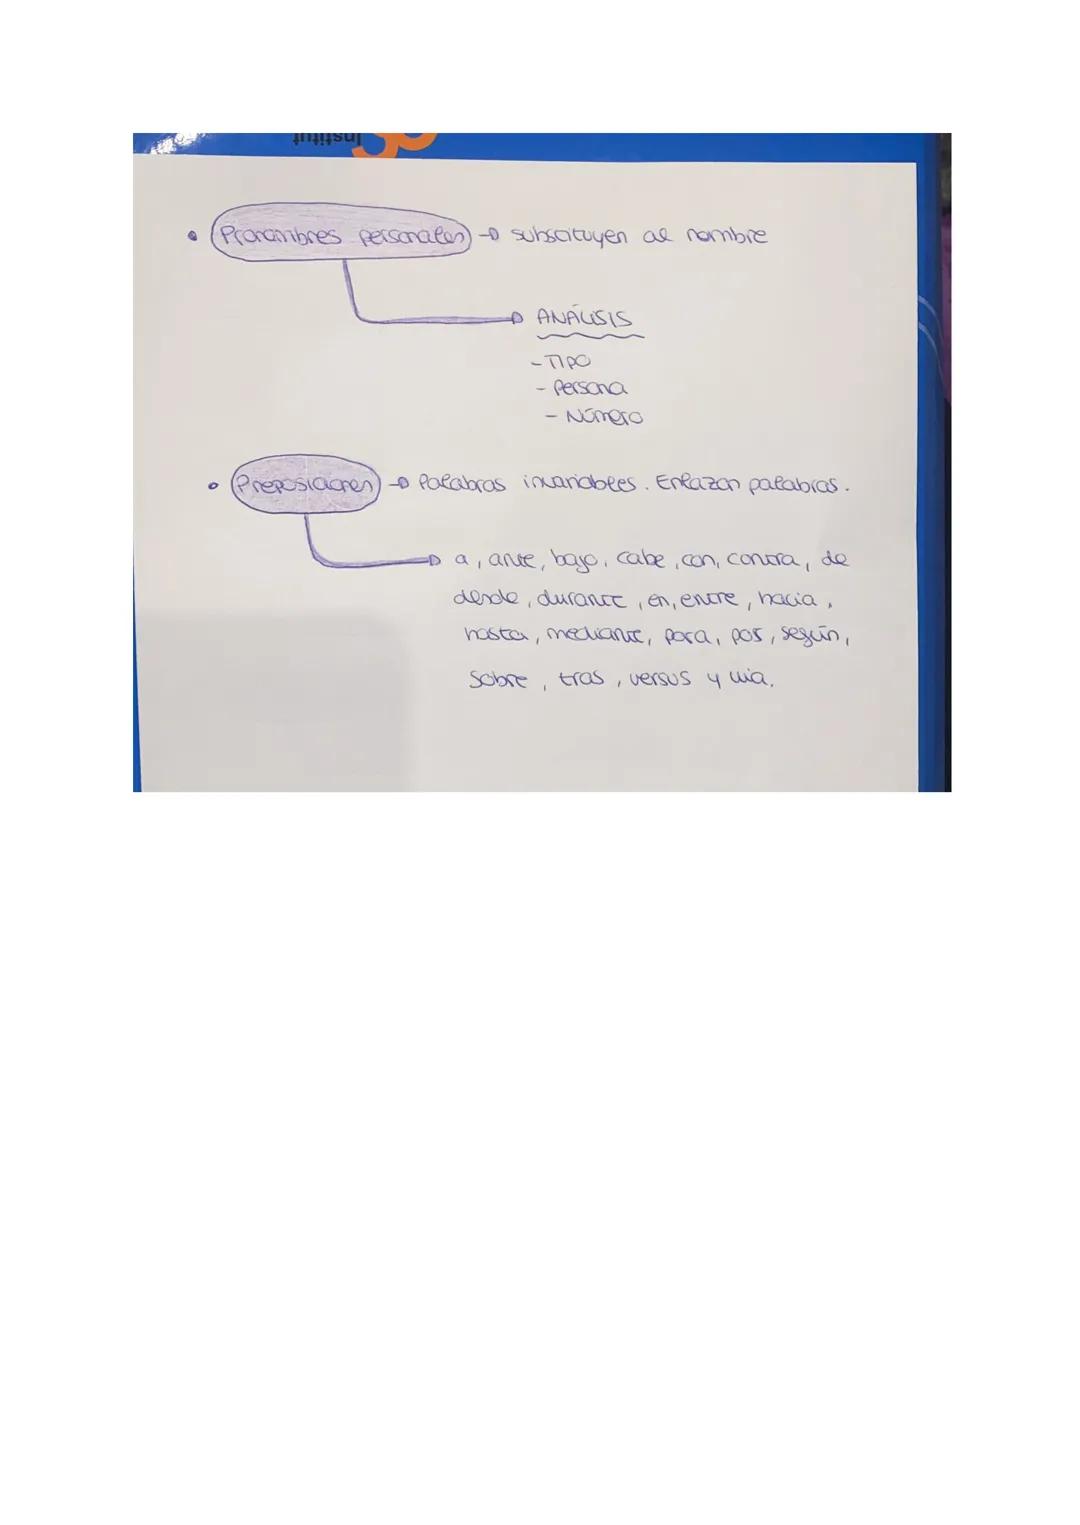 Institut
• Pronombres personales → substituyen al nombre
→ ANÁLISIS
- Tipo
- Persona
- Número
• Preposiciones → Palabras invariables. Enlazan palabras.
→ a, ante, bajo, cabe, con, contra, de
desde, durante, en, entre, hacia,
hasta, mediante, para, por, según,
sobre, tras, versus y vía.